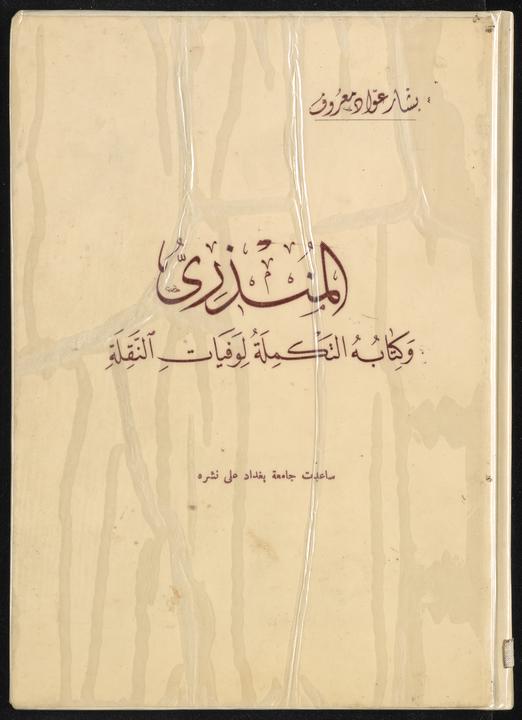 بشار عوّاد معروف
المُنذِرىّ
وَكِتَابُهُ التَكمِلَةُ لِوَفَيَاتِ ٱلنَّقَلَةِ
ساعدت جامعة بغداد على نشره